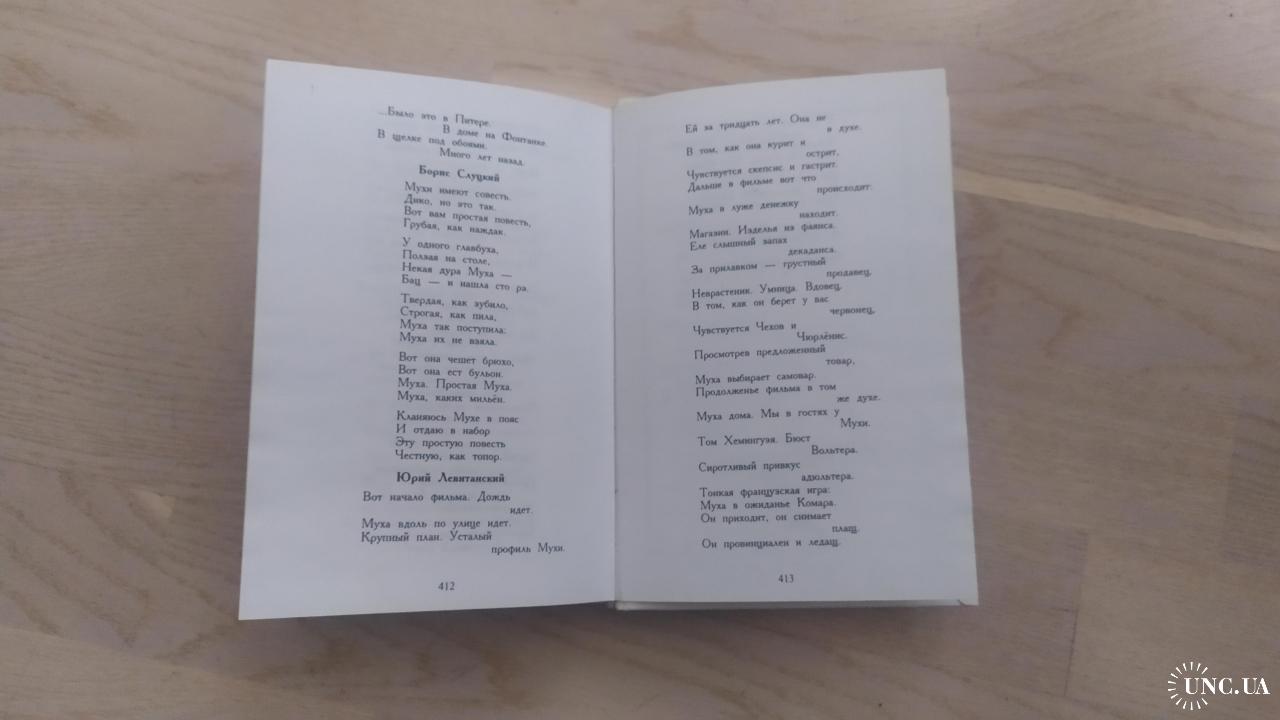 ...Было это в Питере.
В доме на Фонтанке.
В щелке под обоями.
Много лет назад.
Борис Слуцкий
Мухи имеют совесть.
Дико, но это так.
Вот вам простая повесть,
Грубая, как наждак.
У одного главбуха,
Ползая на столе,
Некая дура Муха —
Бац — и нашла сто ра.
Твердая, как зубило,
Строгая, как пила,
Муха так поступила:
Муха их не взяла.
Вот она чешет брюхо,
Вот она ест бульон.
Муха. Простая Муха.
Муха, каких мильён.
Кланяюсь Мухе в пояс
И отдаю в набор
Эту простую повесть
Честную, как топор.
Юрий Левитанский
Вот начало фильма. Дождь
идет.
Муха вдоль по улице идет.
Крупный план. Усталый
профиль Мухи.
412
Ей за тридцать лет. Она не
в духе.
В том, как она курит и
острит,
Чувствуется скепсис и гастрит.
Дальше в фильме вот что
происходит:
Муха в луже денежку
находит.
Магазин. Изделья из фаянса.
Еле слышный запах
декаданса.
За прилавком — грустный
продавец,
Неврастеник. Умница. Вдовец.
В том, как он берет у вас
червонец,
Чувствуется Чехов и
Чюрлёнис.
Просмотрев предложенный
товар,
Муха выбирает самовар.
Продолженье фильма в том
же духе.
Муха дома. Мы в гостях у
Мухи.
Том Хемингуэя. Бюст
Вольтера.
Сиротливый привкус
адюльтера.
Тонкая французская игра:
Муха в ожиданье Комара.
Он приходит, он снимает
плащ.
Он провинциален и ледащ.
413
UNC.UA